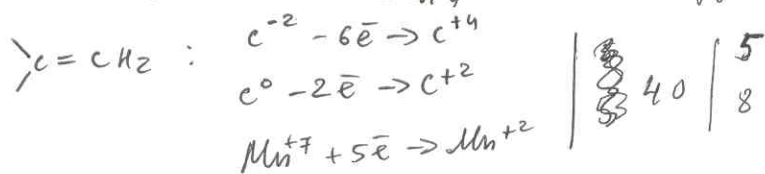 >C=CH2 : C⁻² - 6ē → C⁺⁴
C⁰ - 2ē → C⁺²
Mn⁺⁷ + 5ē → Mn⁺²
| 40 | 5
8